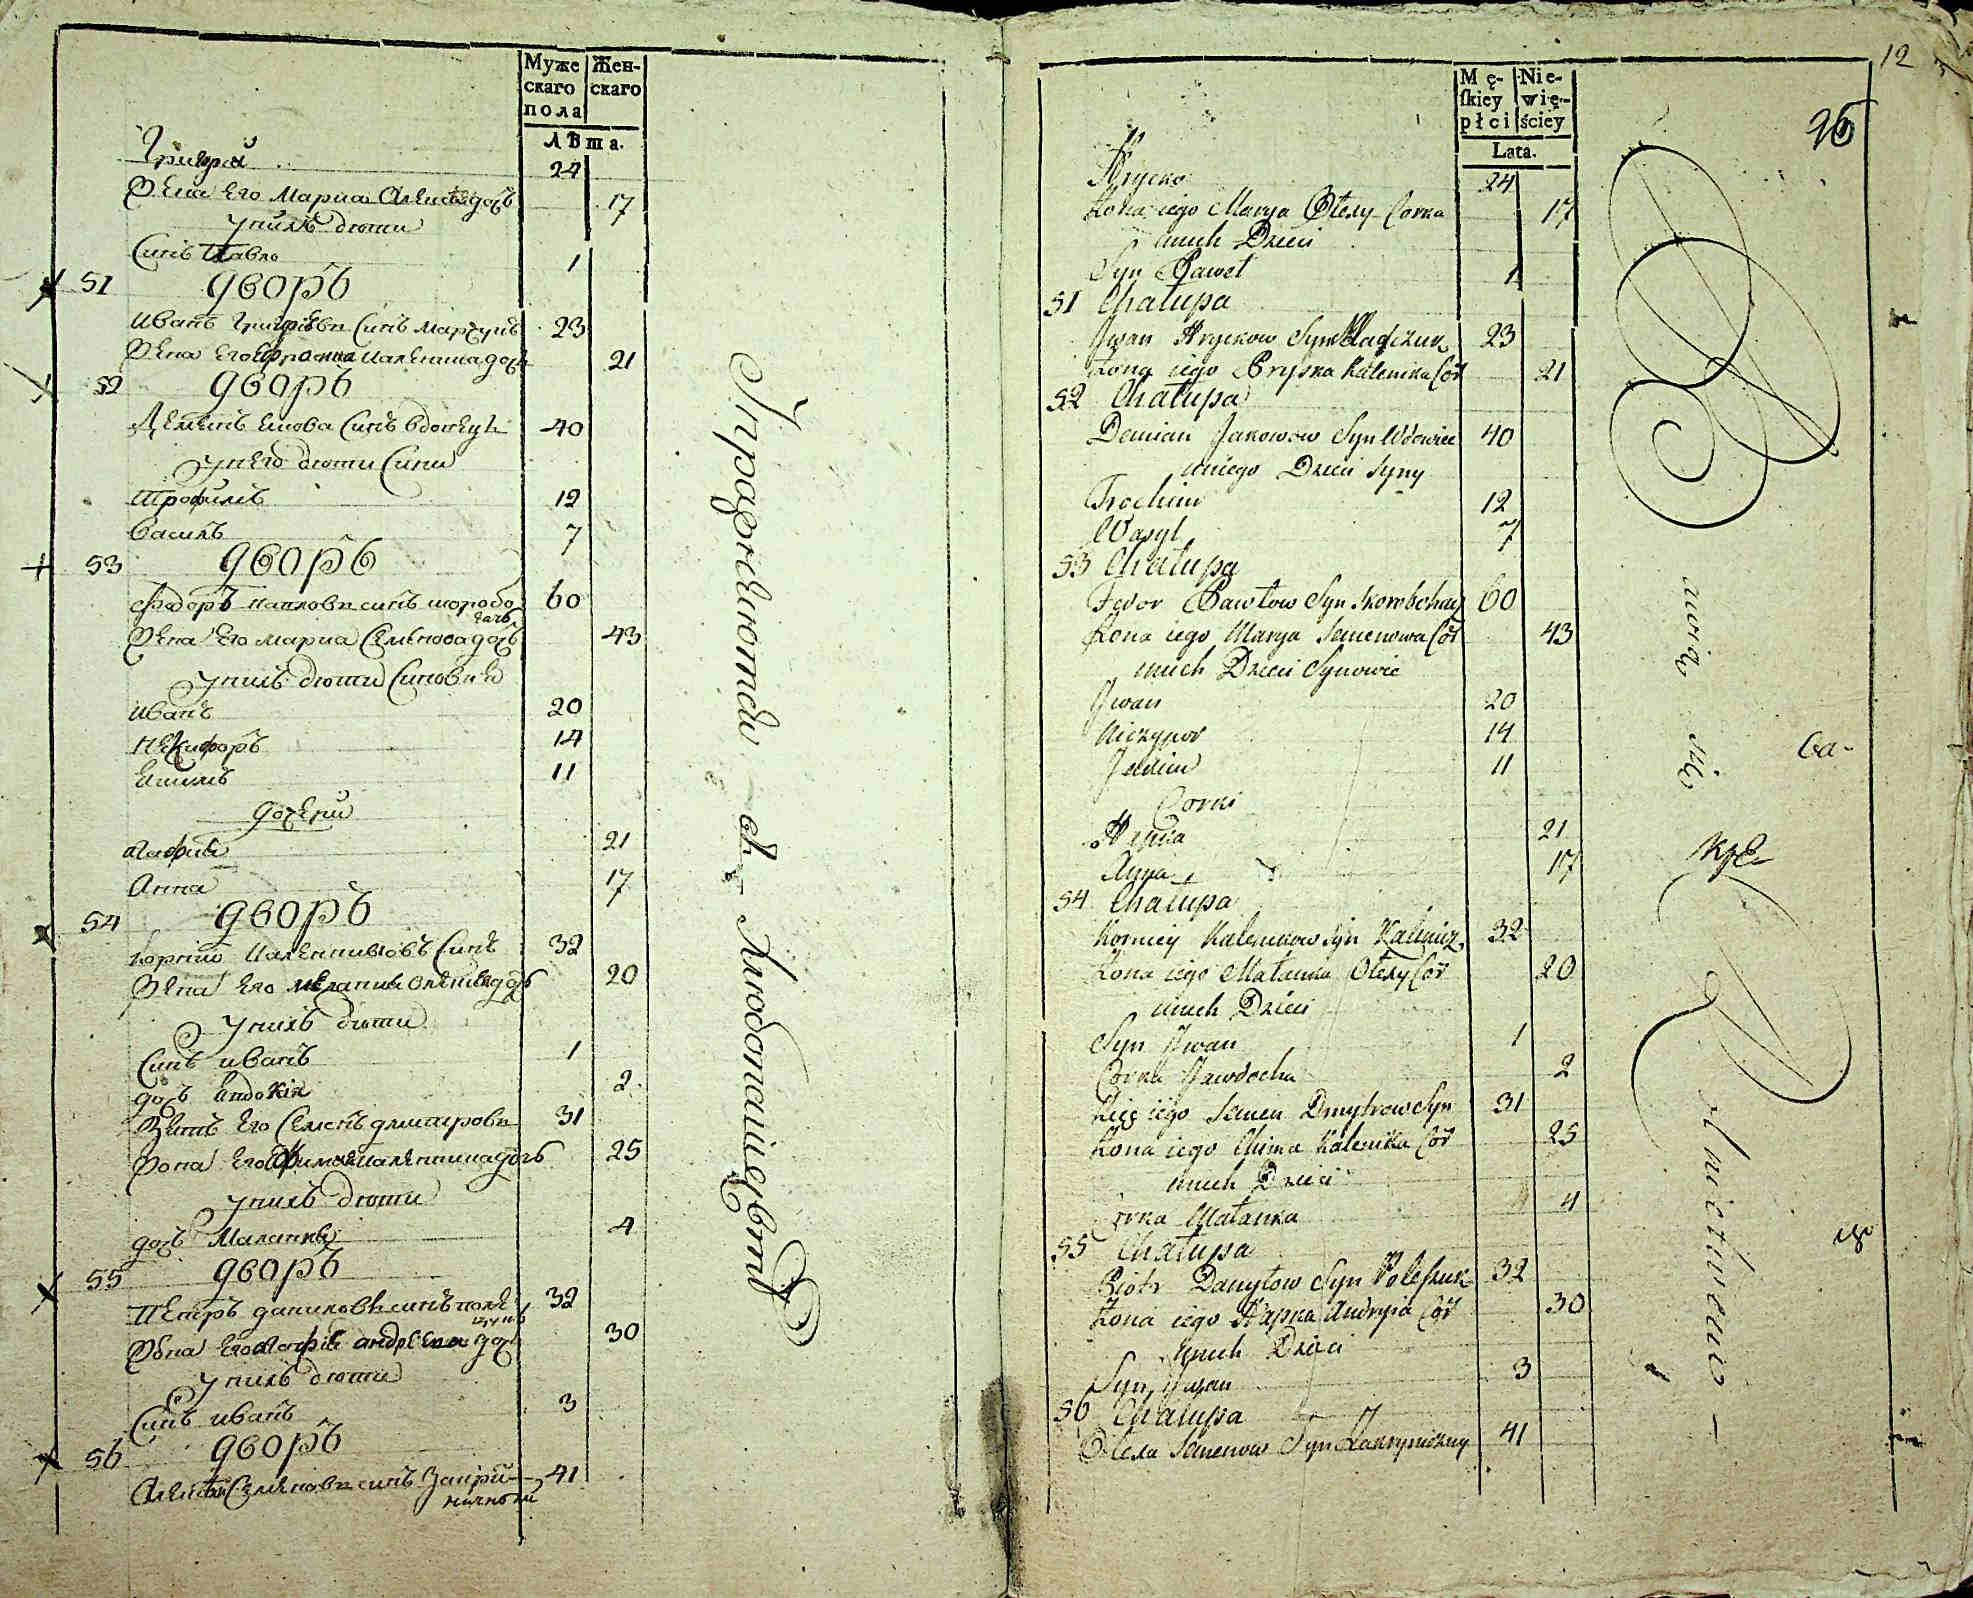 Муже Жен-
скаго скаго
пола
Лѣта.
Григорѝй 24
Жена Его Мариа Алексѣева дочь 17
У нихъ дѣти
Синъ Павло 1
51 дворъ
Иванъ Григоріевъ Синъ 23
Жена Его Ефросиниа дочь 21
52 дворъ
Демянъ Синъ вдовецъ 40
У него дѣти Сини
Трофимъ 12
Василь 7
53 дворъ
Федоръ Павловъ синъ скоробогачъ 60
Жена Его Мариа Семенова дочь 43
У нихъ дѣти Синовья
Иванъ 20
Некифоръ 14
Екимъ 11
дочери
Агафия 21
Анна 17
54 дворъ
Корнѣй Калениковъ Синъ 32
Жена Его Меланиа дочь 20
У нихъ дѣти
Синъ иванъ 1
дочь Евдокия 2
Зять Его Семенъ дмитровъ 31
Жона Его дочь 25
У нихъ дѣти
дочь Маланка 4
55 дворъ
Петръ даниловъ синъ 32
Жона Его Агафия андреева дочь 30
У нихъ дѣти
Синъ иванъ 3
56 дворъ
Алексѣй Семеновъ синъ Закриничный 41
Упражняются въ хлебопашествѣ
12
26
Mę- Nie-
ſkiey wię-
płci ściey
Lata.
Hryćko 24
Żona iego Marya Olexy Corka 17
unich Dzieci
Syn Paweł 1
51 Chałupa
Jwan Hryckow Syn 23
Żona iego Pryśka Kalenika Cór 21
52 Chałupa
Demian Jakowow Syn Wdowiec 40
uniego Dzieci Syny
Trochim 12
Wasyl 7
53 Chałupa
Fedor Pawłow Syn Skorobohacz 60
Żona iego Marya Semenowa Cór 43
unich Dzieci Synowie
Jwan 20
Niczypor 14
Jachim 11
Corki
Hapka 21
Anna 17
54 Chałupa
Korniey Kalenikow Syn 32
Żona iego Małanka Olexy Cór 20
unich Dzieci
Syn Jwan 1
Córka Jawdocha 2
Zięć iego Semen Dmytrow Syn 31
Żona iego Chima Kalenika Cór 25
unich Dzieci
Córka Małanka 4
55 Chałupa
Piotr Danyłow Syn Poleszuk 32
Żona iego Hapka Andryia Cór 30
unich Dzieci
Syn Jwan 3
56 Chałupa
Olexa Semenow Syn Zakryniczny 41
bawią się
Rolnictwem